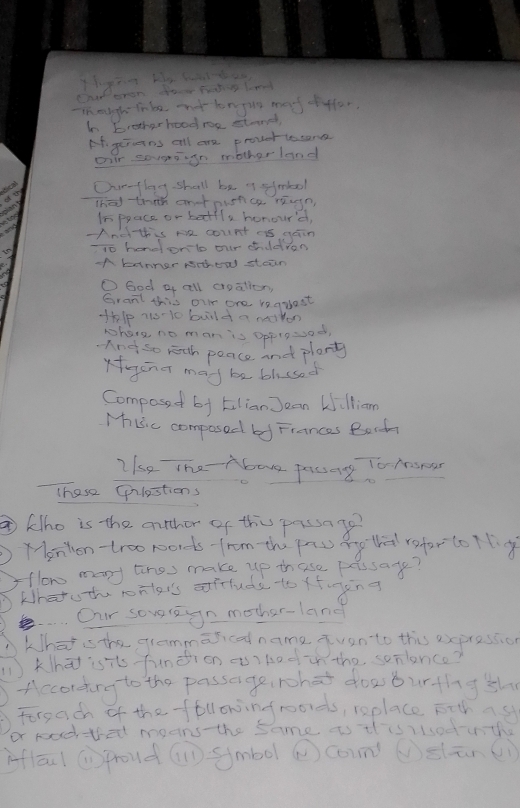 Nigeria We hail thee,
Our own dear native land
Though tribe and tongue may differ.
In brotherhood we stand,
Nigerians all are proud to serve
Our sovereign mother land
Our flag shall be a symbol
That truth and justice reign,
In peace or battle honour'd,
And this we count as gain
To hand on to our children
A banner without stain
O God of all creation,
Grant this our one request
Help us to build a nation
Where no man is oppressed,
And so with peace and plenty
Nigeria may be blessed
Composed by Lilian Jean William
Music composed by Frances Benda
Use The Above passage To Answer
These Questions
a Who is the author of this passage?
Mention two words from the passage that refer to Nige
How many lines make up these passage?
What is the writer's attitude to Nigeria
Our sovereign mother-land
i What is the grammatical name given to this expression
ii What is its function as used in the sentence?
According to the passage, what does our flag stan
For each of the following words, replace with a
or word that means the same as it is used in the
hail (ii) proud (iii) symbol (iv) count (v) stain (vi)